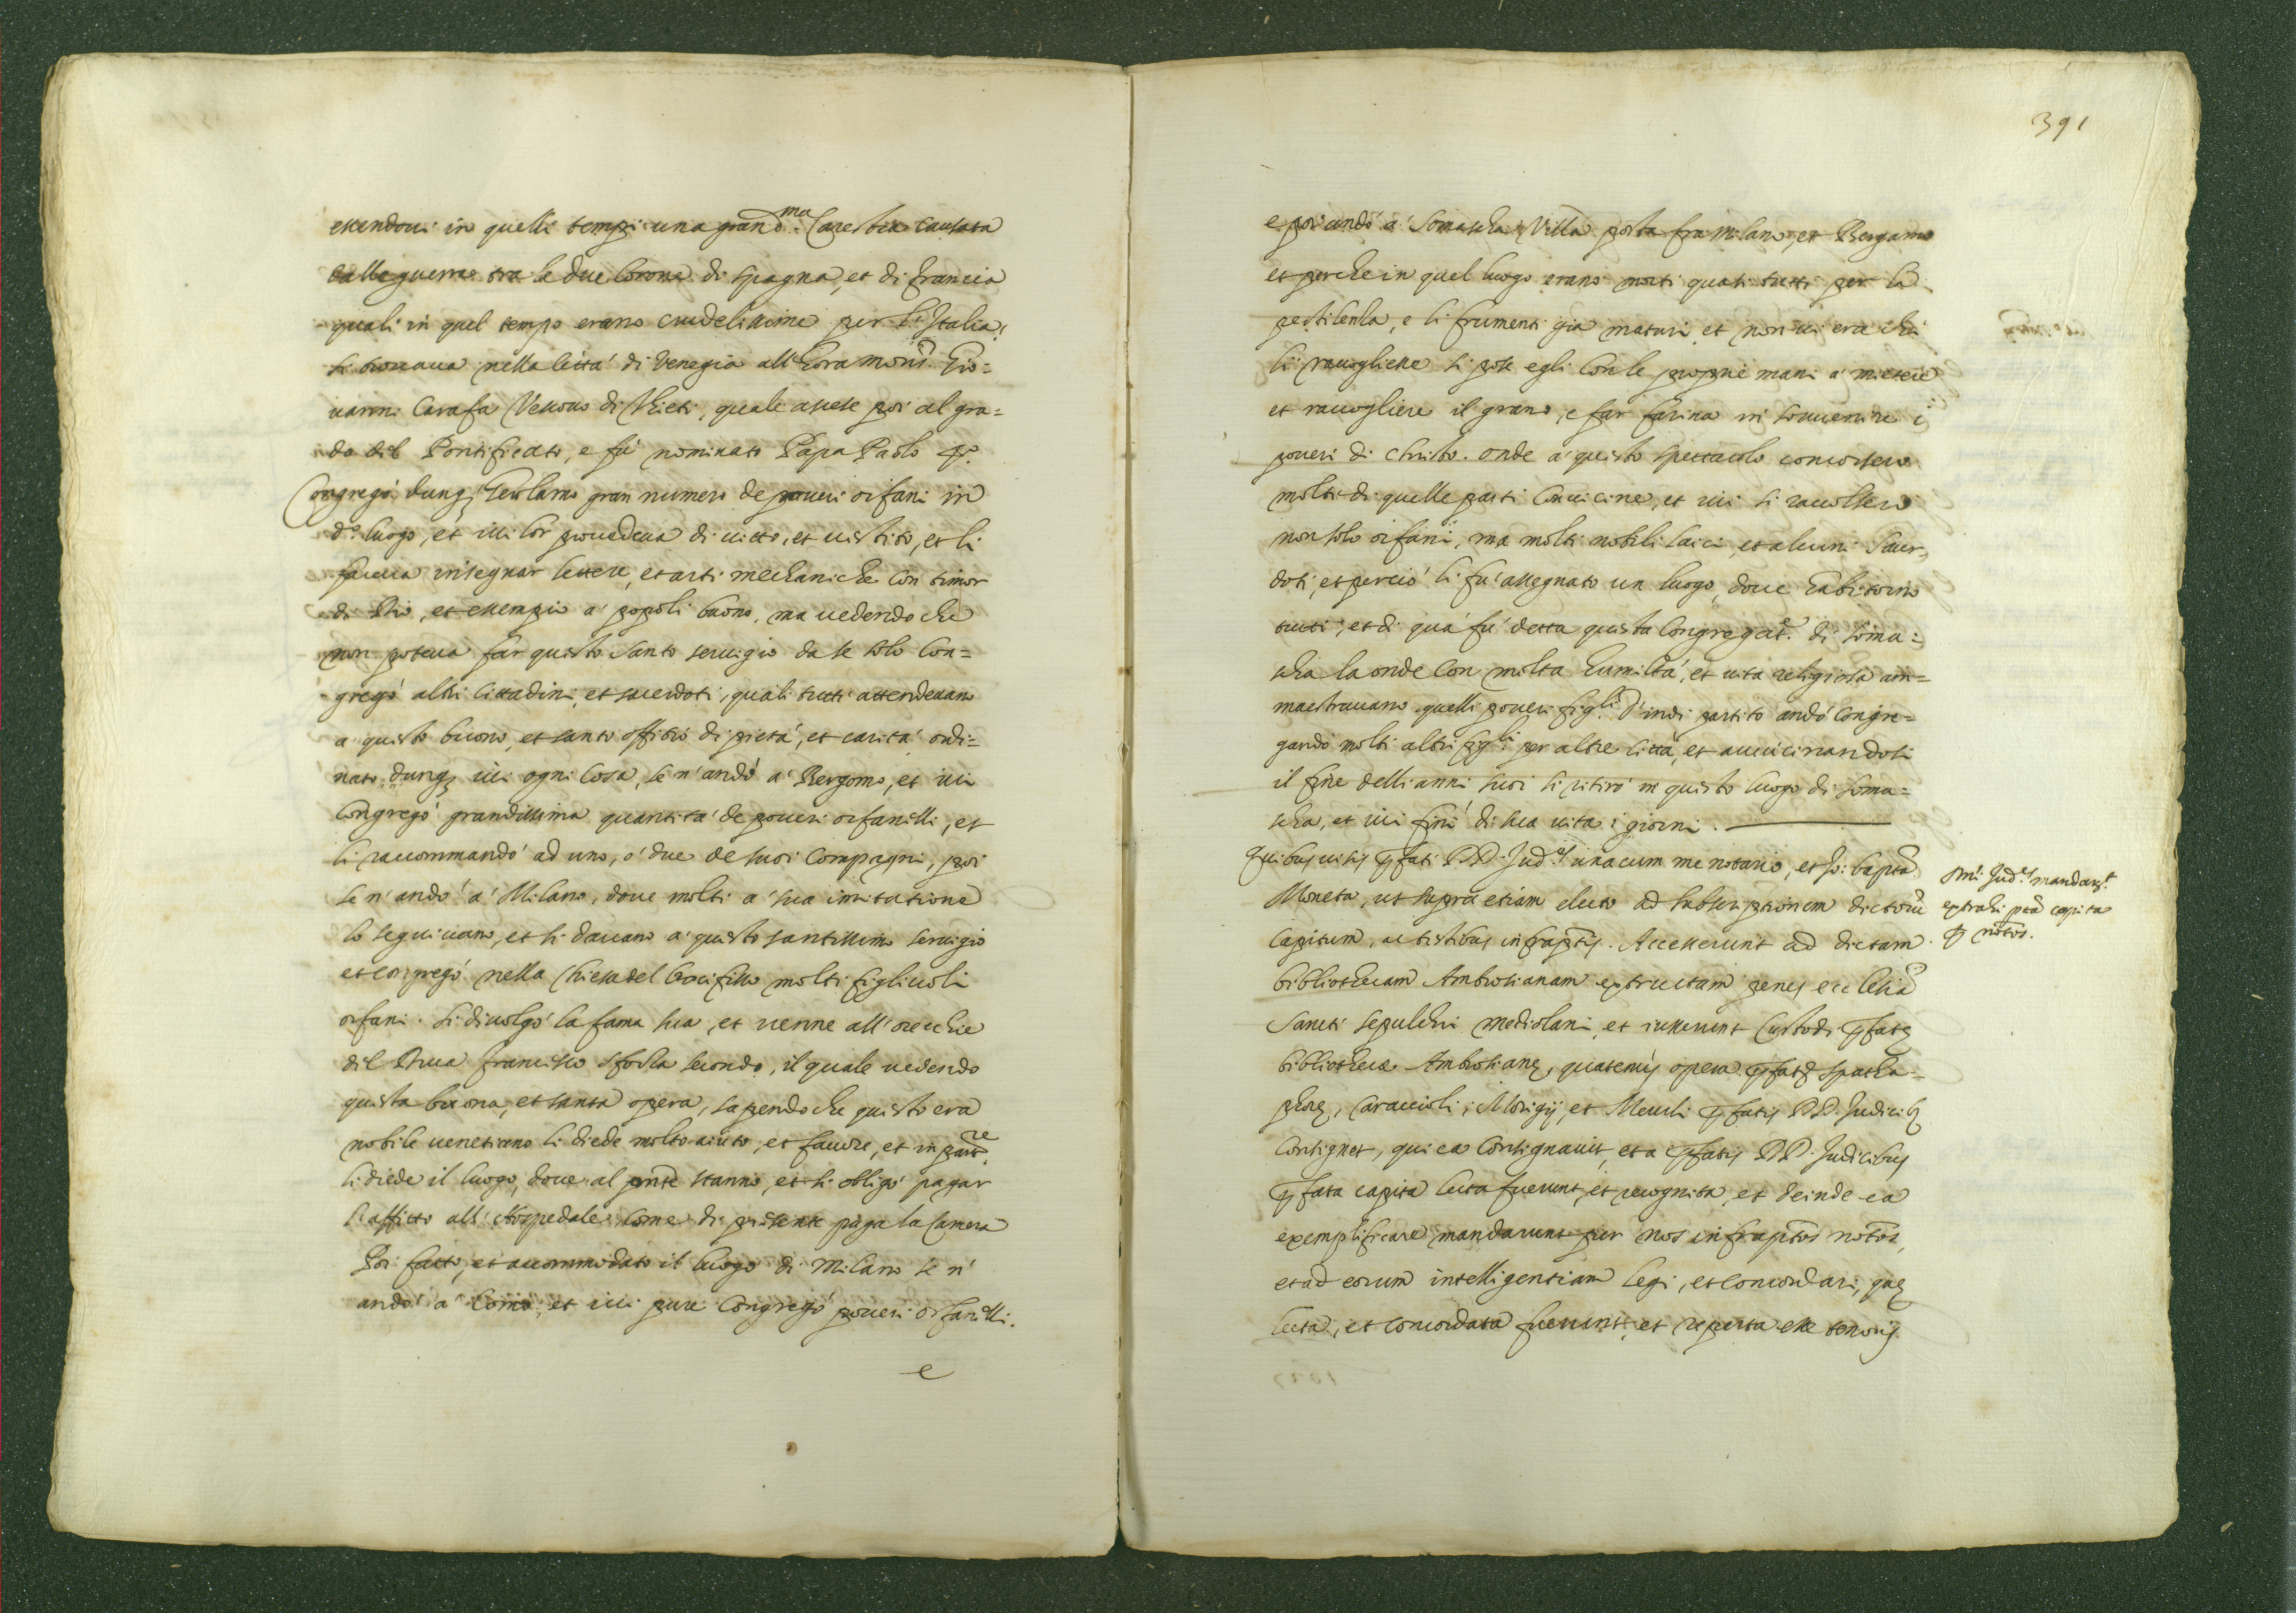 essendoui in quelli tempi una grand.ma Carestia causata
dalle guerre tra le due Corone di spagna, et di francia
quali in quel tempo erano crudelissime per l'Italia,
si trouaua nella Città di Venegia all'hora mons.r Gio=
uanni Carafa Vescouo di Thieti, quale ascese poi al gra=
do del Pontificato, e fù nominato Papa Paolo 4.o
Congregò dunq3 Gerolamo gran numero de poueri orfani in
d.o luogo, et iui lor prouedeua di uitto, et uestito, et li
faceua insegnar lettere, et arti mechaniche con timor
di Dio, et essempio a' popoli buono, ma uedendo che
non poteua far questo santo seruigio da se solo Con=
gregò altri Cittadini, et sacerdoti, quali tutti attendeuano
a questo buono, et santo offitio di pietà, et carità ordi=
nato dunq3 iui ogni Cosa, se n'andò a' Bergomo, et iui
Congregò grandissima quantità de poueri orfanelli, et
li raccommandò ad uno, ò due de suoi Compagni, poi
se n'andò a' Milano, doue molti a' sua imitatione
lo seguiuano, et si dauano a' questo santissimo seruigio
et congregò nella Chiesa del Crocifisso molti figliuoli
orfani. si diuolgò la fama sua, et uenne all'orecchie
del Duca francesco sforza secondo, il quale uedendo
questa buona, et santa opera, sapendo che questo era
nobile uenetiano li diede molto aiuto, et fauore, et in part.re
li diede il luogo, doue al pnte stanno, et si obligò pagar
l'affitto all'Hospedale come di presente paga la Camera
Poi fatto, et accommodato il luogo di Milano se n'
andò a' Como, et iui pure Congregò poueri orfanelli.
e
391
e poi andò a' Somascha Villa posta fra Milano, et Bergamo
et perche in quel luogo erano morti quasi tutti per la
pestilenza, e li frumenti gia maturi, et non ui era chi
li raccogliesse si pose egli con le proprie mani a' mietere
et raccogliere il grano, e far farina in souuenire i
poueri di Christo. onde a' questo spettacolo concorsero
molti di quelle parti Conuicine, et iui si raccolsero
non solo orfani, ma molti nobili laici, et alcuni Sacer=
doti, et perciò li fu' assegnato un luogo, doue habitorno
tutti, et di quà fu' detta questa Congregat.e di soma=
scha la onde con molta humiltà, et uita religiosa am=
maestrauano quelli poueri figli. D'indi partito andò congre=
gando molti altri figli per altre Città, et auuicinandosi
il fine delli anni suoi si ritirò in questo luogo di soma=
scha, et iui finì di sua uita i giorni.
Quibus uisis pfati DD. Jud.es unacum me notario, et Jo: bapta
Moneta, ut supra etiam electo ad subscriptionem dictorũ
Capitum, ac testibus infraptis. Accesserunt ad dictam
bibliothecam Ambrosianam extructam penes ecclesiã
Sancti sepulchri Mediolani, et iusserunt Custodi pfatę
bibliothecæ Ambrosianę, quatenus opera pfatę spatha=
phorę, Caraccioli, Morigij, et Meuli pfatis DD. Judicib3
consignet, qui ea consignauit, et a pfatis DD. Judicibus
pfata capita lecta fuerunt, et recognita, et deinde ea
exemplificare mandarunt per nos infraptos notos,
et ad eorum intelligentiam legi, et concordari, quę
lecta, et concordata fuerunt, et reperta esse tenoris
Dni Jud.es mandar.t
extrahi pta capita
p notos.